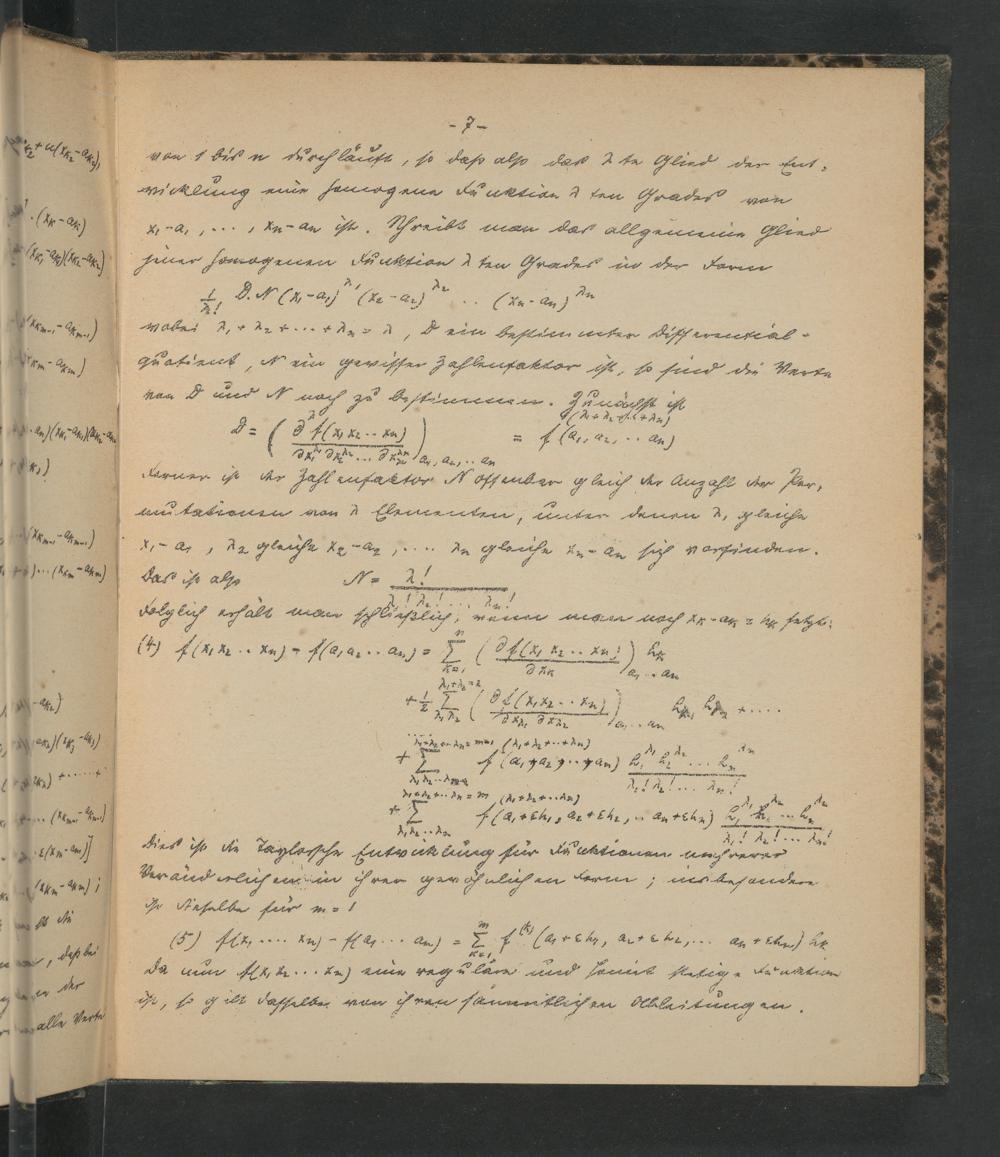 - 7 -
von 1 bis n durchläuft, so daß also das λte Glied der Ent-
wicklung eine homogene Funktion λten Grades von
x₁-a₁, ..., xₙ-aₙ ist. Schreibt man das allgemeine Glied
jener homogenen Funktion λten Grades in der Form
1/λ! D.N (x₁-a₁)^λ₁ (x₂-a₂)^λ₂ .. (xₙ-aₙ)^λₙ
wobei λ₁+λ₂+...+λₙ = λ, D ein bestimmter Differential-
quotient, N ein gewisser Zahlenfaktor ist, so sind die Werte
von D und N noch zu bestimmen. Zunächst ist
D = (∂^λ f(x₁ x₂ .. xₙ) / ∂x₁^λ₁ ∂x₂^λ₂ ... ∂xₙ^λₙ) a₁, a₂, .. aₙ = f^(λ₁+λ₂+..+λₙ) (a₁, a₂, .. aₙ)
Ferner ist der Zahlenfaktor N offenbar gleich der Anzahl der Per-
mutationen von λ Elementen, unter denen λ₁ gleiche
x₁-a₁, λ₂ gleiche x₂-a₂, .... λₙ gleiche xₙ-aₙ sich vorfinden.
Das ist also N = λ! / λ₁! λ₂! ... λₙ!
Folglich erhält man schließlich, wenn man noch xₖ-aₖ = hₖ setzt:
(4) f(x₁ x₂ .. xₙ) - f(a₁ a₂ .. aₙ) = Σ_{κ=1}^n (∂f(x₁ x₂ ... xₙ) / ∂xₖ) a₁ .. aₙ hₖ
+ 1/2 Σ_{λ₁ λ₂}^{λ₁+λ₂=2} (∂f(x₁ x₂ .. xₙ) / ∂x_λ₁ ∂x_λ₂) a₁ .. aₙ h_λ₁ h_λ₂ + ....
+ Σ_{λ₁ λ₂ .. λₙ}^{λ₁+λ₂ .. λₙ = m-1} f^(λ₁+λ₂+..+λₙ) (a₁, a₂, .., aₙ) h₁^λ₁ h₂^λ₂ ... hₙ^λₙ / λ₁! λ₂! ... λₙ!
+ Σ_{λ₁ λ₂ .. λₙ}^{λ₁+λ₂+.. λₙ = m} f^(λ₁+λ₂+..λₙ) (a₁+εh₁, a₂+εh₂, .. aₙ+εhₙ) h₁^λ₁ h₂^λ₂ ... hₙ^λₙ / λ₁! λ₂! ... λₙ!
Dies ist die Taylorsche Entwicklung für Funktionen mehrerer
Veränderlichen in ihrer gewöhnlichen Form; insbesondere
ist dieselbe für m = 1
(5) f(x₁ .... xₙ) - f(a₁ ... aₙ) = Σ_{κ=1}^m f^(k) (a₁+εh₁, a₂+εh₂, ... aₙ+εhₙ) hₖ
Da nun f(x₁ x₂ ... xₙ) eine reguläre und somit stetige Funktion
ist, so gilt dasselbe von ihren sämmtlichen Ableitungen.